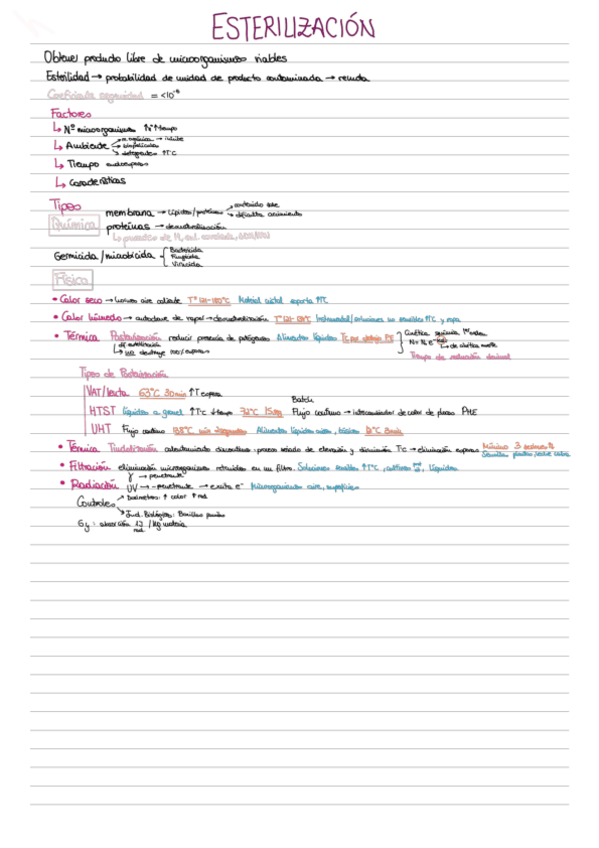 ESTERILIZACIÓN
Obtener producto libre de microorganismos viables
Esterilidad → probabilidad de unidad de producto contaminada → reducida
Coeficiente seguridad = <10⁻⁶
Factores
↳ Nº microorganismos ↑Nº↑tiempo
↳ Ambiente → m. orgánica → inhibe
↳ Tiempo endoesporas
↳ Características
Tipos
Química
membrana → lípidos/proteínas
proteínas → desnaturalización
Germicida/microbicida
Bactericida
Fungicida
Viricida
Física
• Calor seco → hornos aire caliente Tª Material cristal soporta ↑Tª
• Calor húmedo → autoclave de vapor → desnaturalización Instrumental/soluciones no sensibles ↑Tª y ropa
• Térmica Pasteurización reducir presencia de patógenos Alimentos líquidos
Cinética química 1er orden
Tiempo de reducción decimal
Tipos de Pasteurización
VAT/lenta 63°C 30min ↑T espera
Batch
HTST líquidos a granel ↑Tªc ↓tiempo 72°C 15sg Flujo continuo → intercambiador de calor de placas
UHT Flujo continuo Alimentos líquidos
• Térmica Tindalización calentamiento discontinuo: proceso variado de elevación y disminución Tªc → eliminación esporas Mínimo 3
• Filtración eliminación microorganismos retenidos en un filtro. Soluciones sensibles ↑Tªc, líquidos
• Radiación γ → penetrante
UV → -penetrante → excita e⁻ Microorganismos aire, superficies
Controles → Dosímetros: ↑ color ↑ rad
Ind. Biológicos: Bacillus pumilus
Gy: absorción 1J rad /kg materia